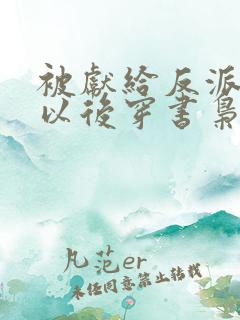 被獻給反派
以後穿書梟
凡范er
未经同意禁止转载